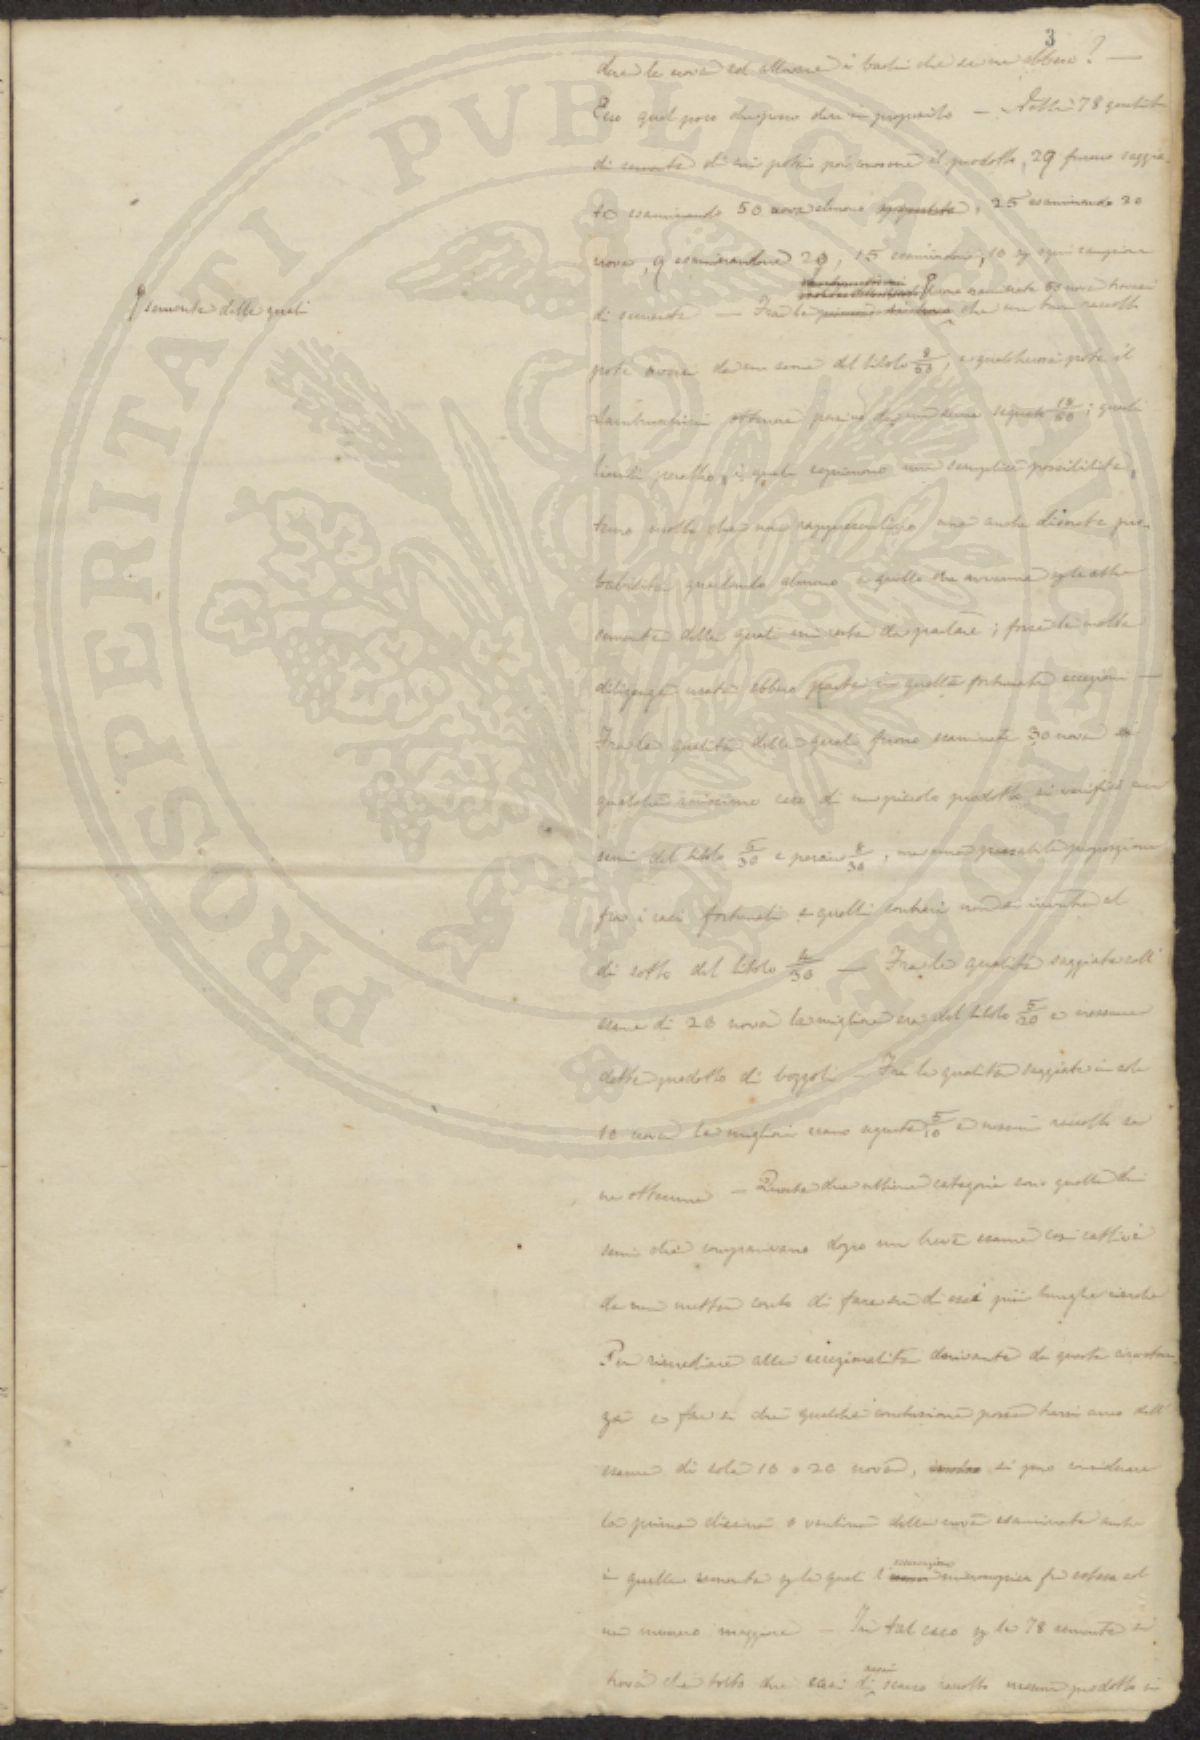 3
dere le uova ed allevare i bachi che se ne ebbero? —
Ecco quel poco che posso dire in proposito — Delle 78 qualità
di semente di cui potei poi conoscere il prodotto, 29 furono saggia-
te esaminando 50 uova almeno, 25 esaminando 30
uova, 9 esaminandone 20, 15 esaminandone 10 per ogni campione
semente delle quali
furono esaminate 50 uova trovai
di semente — Fra le che un buon raccolto
potè aversi da un seme del titolo 8/50, e qualcheduno potè il
ottenere persino da un seme segnato 19/50; questi
limiti peraltro, i quali esprimono una semplice possibilità,
temo molto che non rappresentino una anche discreta pro-
babilità, guardando almeno a quello che avvenne per le altre
sementi delle quali mi resta da parlare; forse le molte
diligenze usate ebbero parte in quelle fortunate eccezioni —
Fra le qualità delle quali furono esaminate 30 uova
qualche rarissimo caso di un piccolo prodotto si verificò con
semi del titolo 5/30 e persino 8/30, ma una proporzione
fra i casi fortunati e quelli contrari non si incontra al
di sotto del titolo 4/30 — Fra le qualità saggiate coll'
esame di 20 uova la migliore era del titolo 5/20 e nessuna
dette prodotto di bozzoli — Fra le qualità saggiate in sole
10 uova le migliori erano segnate 5/10 e nessun raccolto se
ne ottenne — Queste due ultime categorie sono quelle di
semi che comparivano dopo un breve esame così cattivi
da non metter conto di fare su di essi più lunghe ricerche
Per rimediare alla eccezionalità derivante da questa circostan-
za e far sì che qualche conclusione possa trarsi anco dall'
esame di sole 10 o 20 uova, si può considerare
la prima diecina o ventina delle uova esaminate anche
in quelle semente per le quali l' microscopica fu estesa ad
un numero maggiore — In tal caso per le 78 semente si
trova che tolto due casi di assai scarso raccolto nessun prodotto si